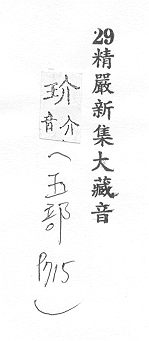 29精嚴新集大藏音
玠 音介
(玉五部 P.15)